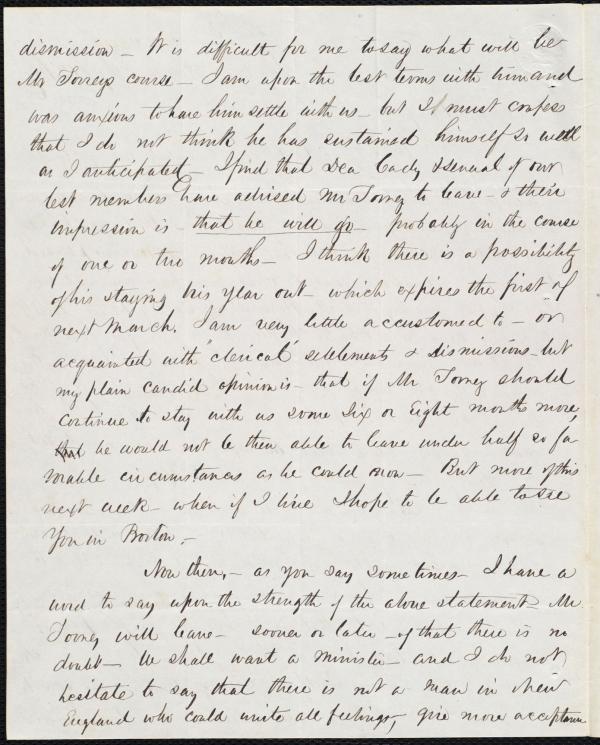 dismission – It is difficult for me to say what will be
Mr Torreys course – I am upon the best terms with him and
was anxious to have him settle with us – but I must confess
that I do not think he has sustained himself so well
as I anticipated – I find that Dea Cady & several of our
best members have advised Mr Torrey to leave – & their
impression is – that he will go – probably in the course
of one or two months – I think there is a possibility
of his staying his year out – which expires the first of
next March. I am very little accustomed to – or
acquainted with "clerical" settlements & dismissions – but
my plain candid opinion is – that if Mr Torrey should
continue to stay with us some Six or Eight months more,
he would not be then able to leave under half so fa
vorable circumstances as he could now – But more of this
next week – when if I live I hope to be able to see
You in Boston. –
Now then, – as you say sometimes – I have a
word to say upon the strength of the above statement – Mr.
Torrey will leave – sooner or later – of that there is no
doubt – We shall want a minister – and I do not
hesitate to say that there is not a man in New
England who could unite all feelings, give more acceptance